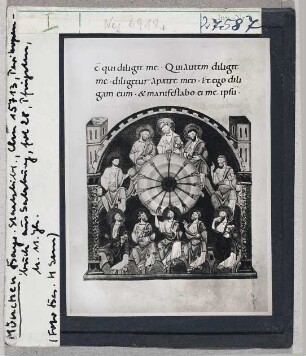 27587
ē qui diligit me · Qui autem diligit
me · diligetur a patre meo · Et ego dili
gam eum · & manifestabo ei me ipsū ·
München, Bayer. Staatsbibl., Clm 15713, Perikopen-
buch aus Salzburg, fol 28, Pfingsten,
11. Jh.